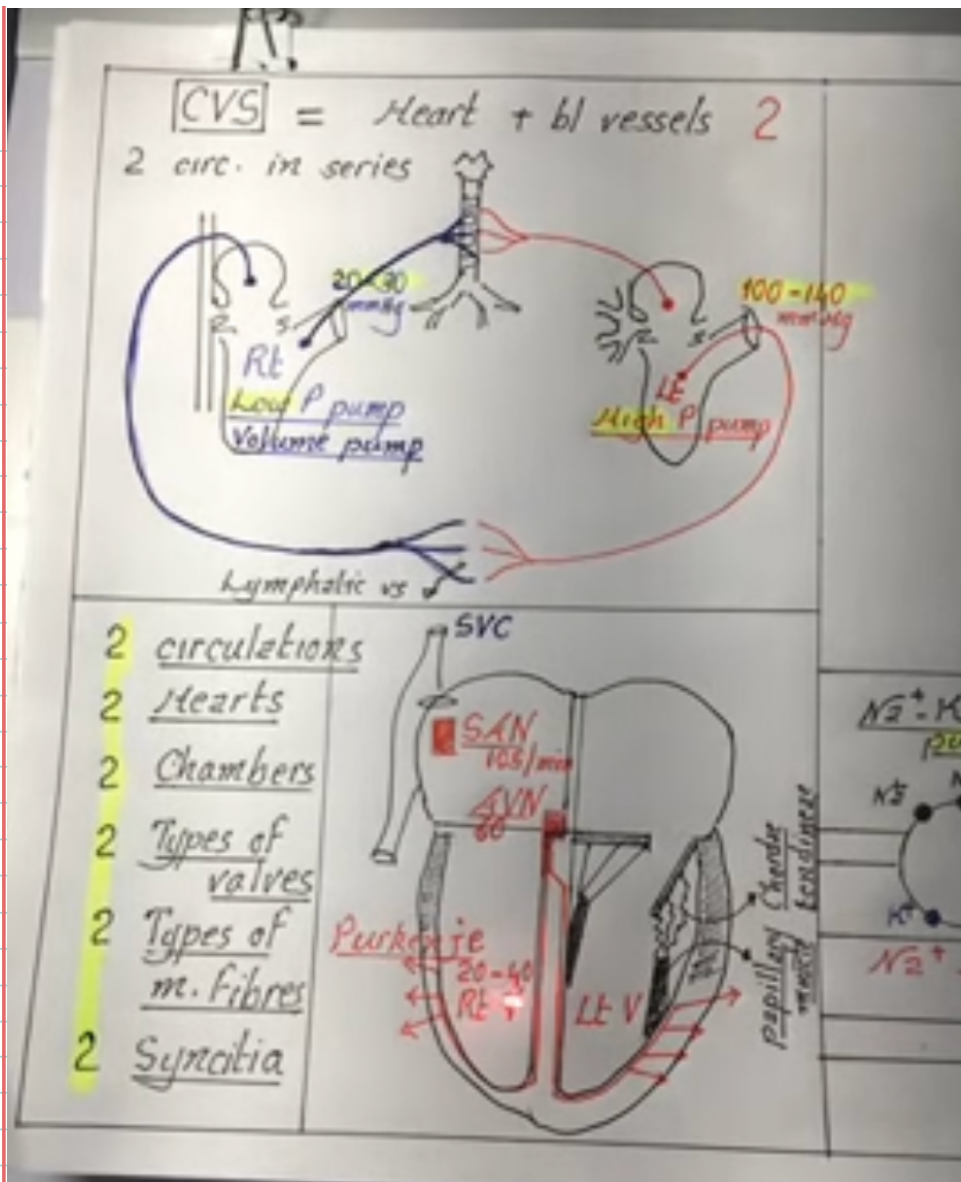 CVS = Heart + bl vessels 2
2 circ. in series
20-30
mmHg
100-140
mmHg
Rt
Low P pump
Volume pump
Lt
High P pump
Lymphatic vs
2 circulations
2 Hearts
2 Chambers
2 Types of
valves
2 Types of
m. fibres
2 Syncitia
SVC
SAN
105/min
AVN
60
Purkenje
20-40
Rt
Lt V
Chordae
tendineae
papillary
muscle
Na+ - K
Na+
K+
Na+